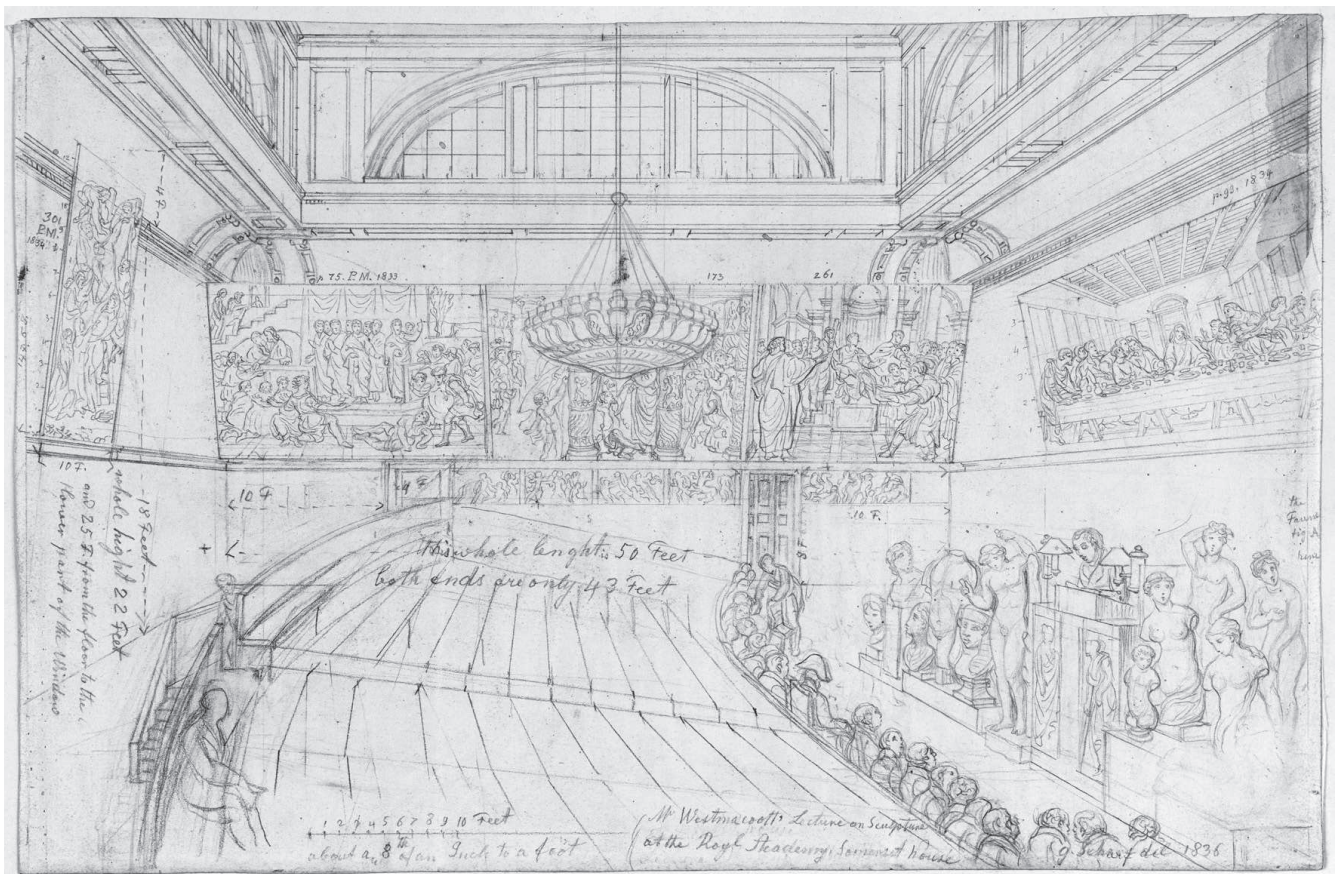 301
P.M.
1834
4 F
75. P.M. 1833.
173
261
1834
10 F.
10 F
4 F
10. F.
8 F
18 Feet
whole hight 22 Feet
and 25 F. from the floor to the
lower part of the Window
this whole lenght is 50 Feet
both ends are only 43 Feet
the
Faun
here
1 2 3 4 5 6 7 8 9 10 Feet
about a 8th of an Inch to a foot
Mr Westmacott's Lecture on Sculpture
at the Royl Academy, Somerset House
G. Scharf del 1836